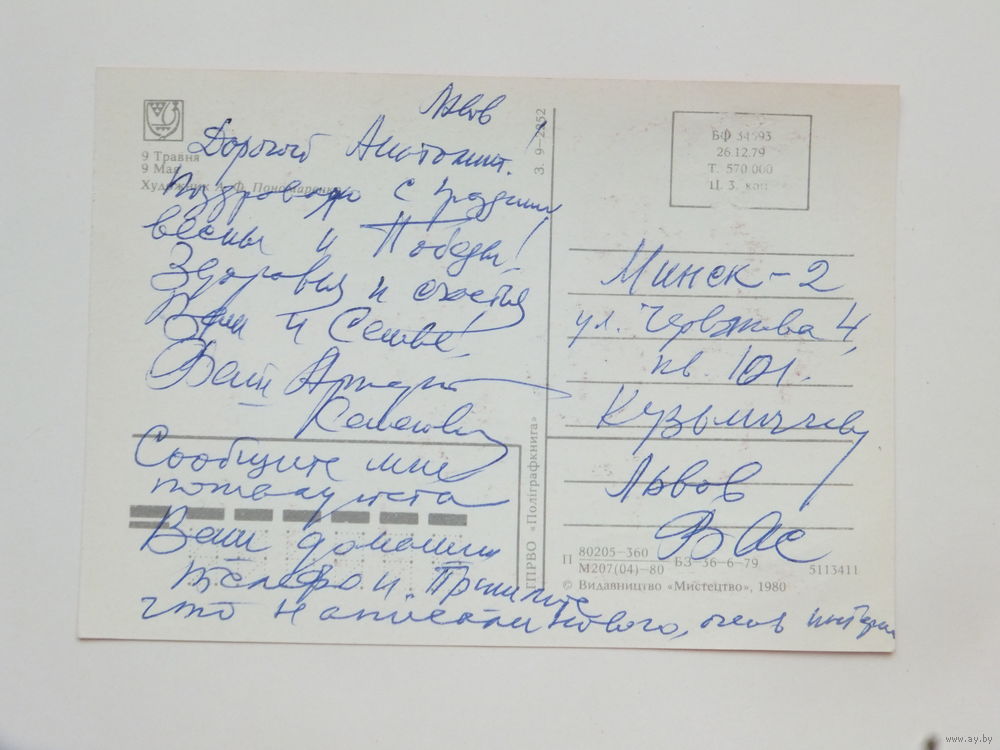 Львов
Дорогой Анатолий!
Поздравляю с праздник
весны и Победы!
Здоровья и счастья
Вам и Семье!
Ваш Артур
Сообщите мне
пожалуйста
Ваш домашний
телефон. Пришлите
что написали нового, очень интерес
9 Травня
9 Мая
Художник А. Ф. Пономаренко
З. 9–2252
ДПРВО «Поліграфкнига»
БФ 34593
26.12.79
Т. 570 000
Ц. 3 коп
Минск – 2
ул. Червякова 4,
кв. 101.
Кузьмичеву
Львов
П 80205–360 БЗ–36–6–79
М207(04)–80 5113411
© Видавництво «Мистецтво», 1980
www.ay.by